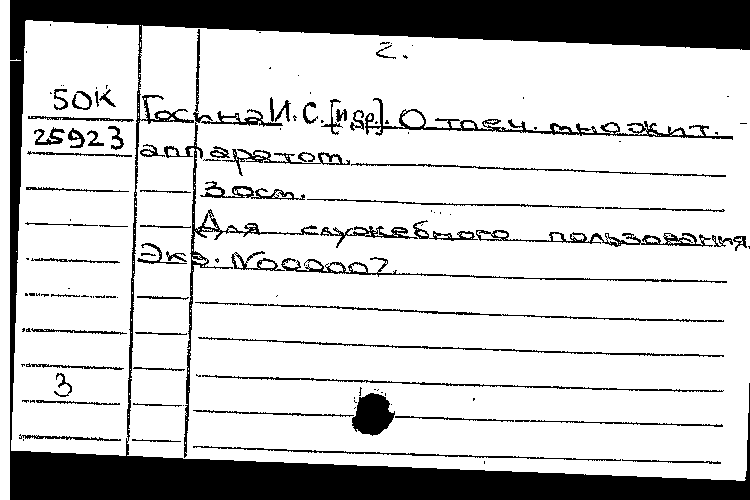 2.
50К Госина И. С. [и др]. Отпеч. множит.
25923 аппаратом.
3 осн.
Для служебного пользования.
Экз. №000007.
3